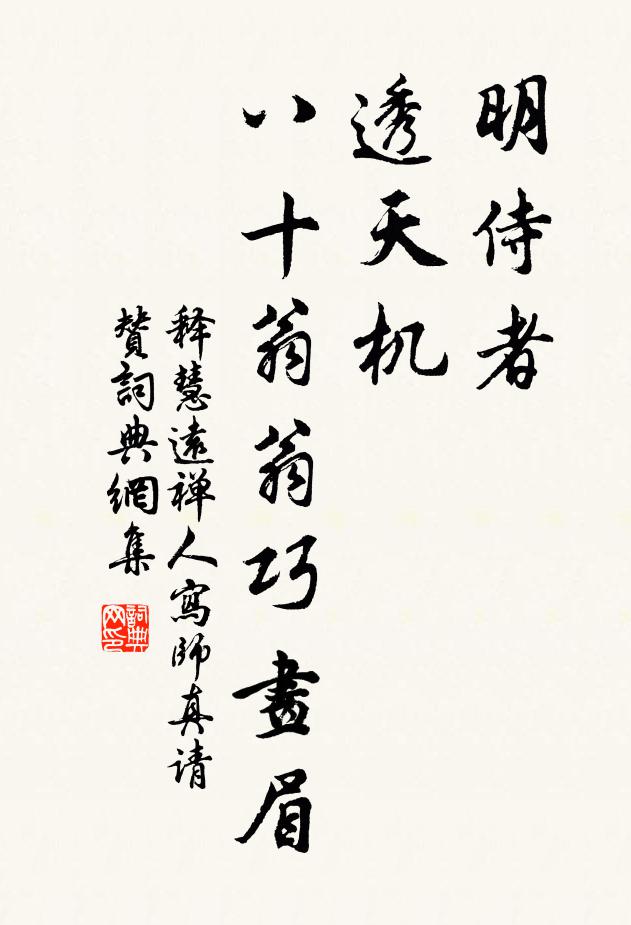 明侍者
透天机
八十翁翁巧畫眉
释慧遠禅人寫師真请
赞詞典網集
詞典网印